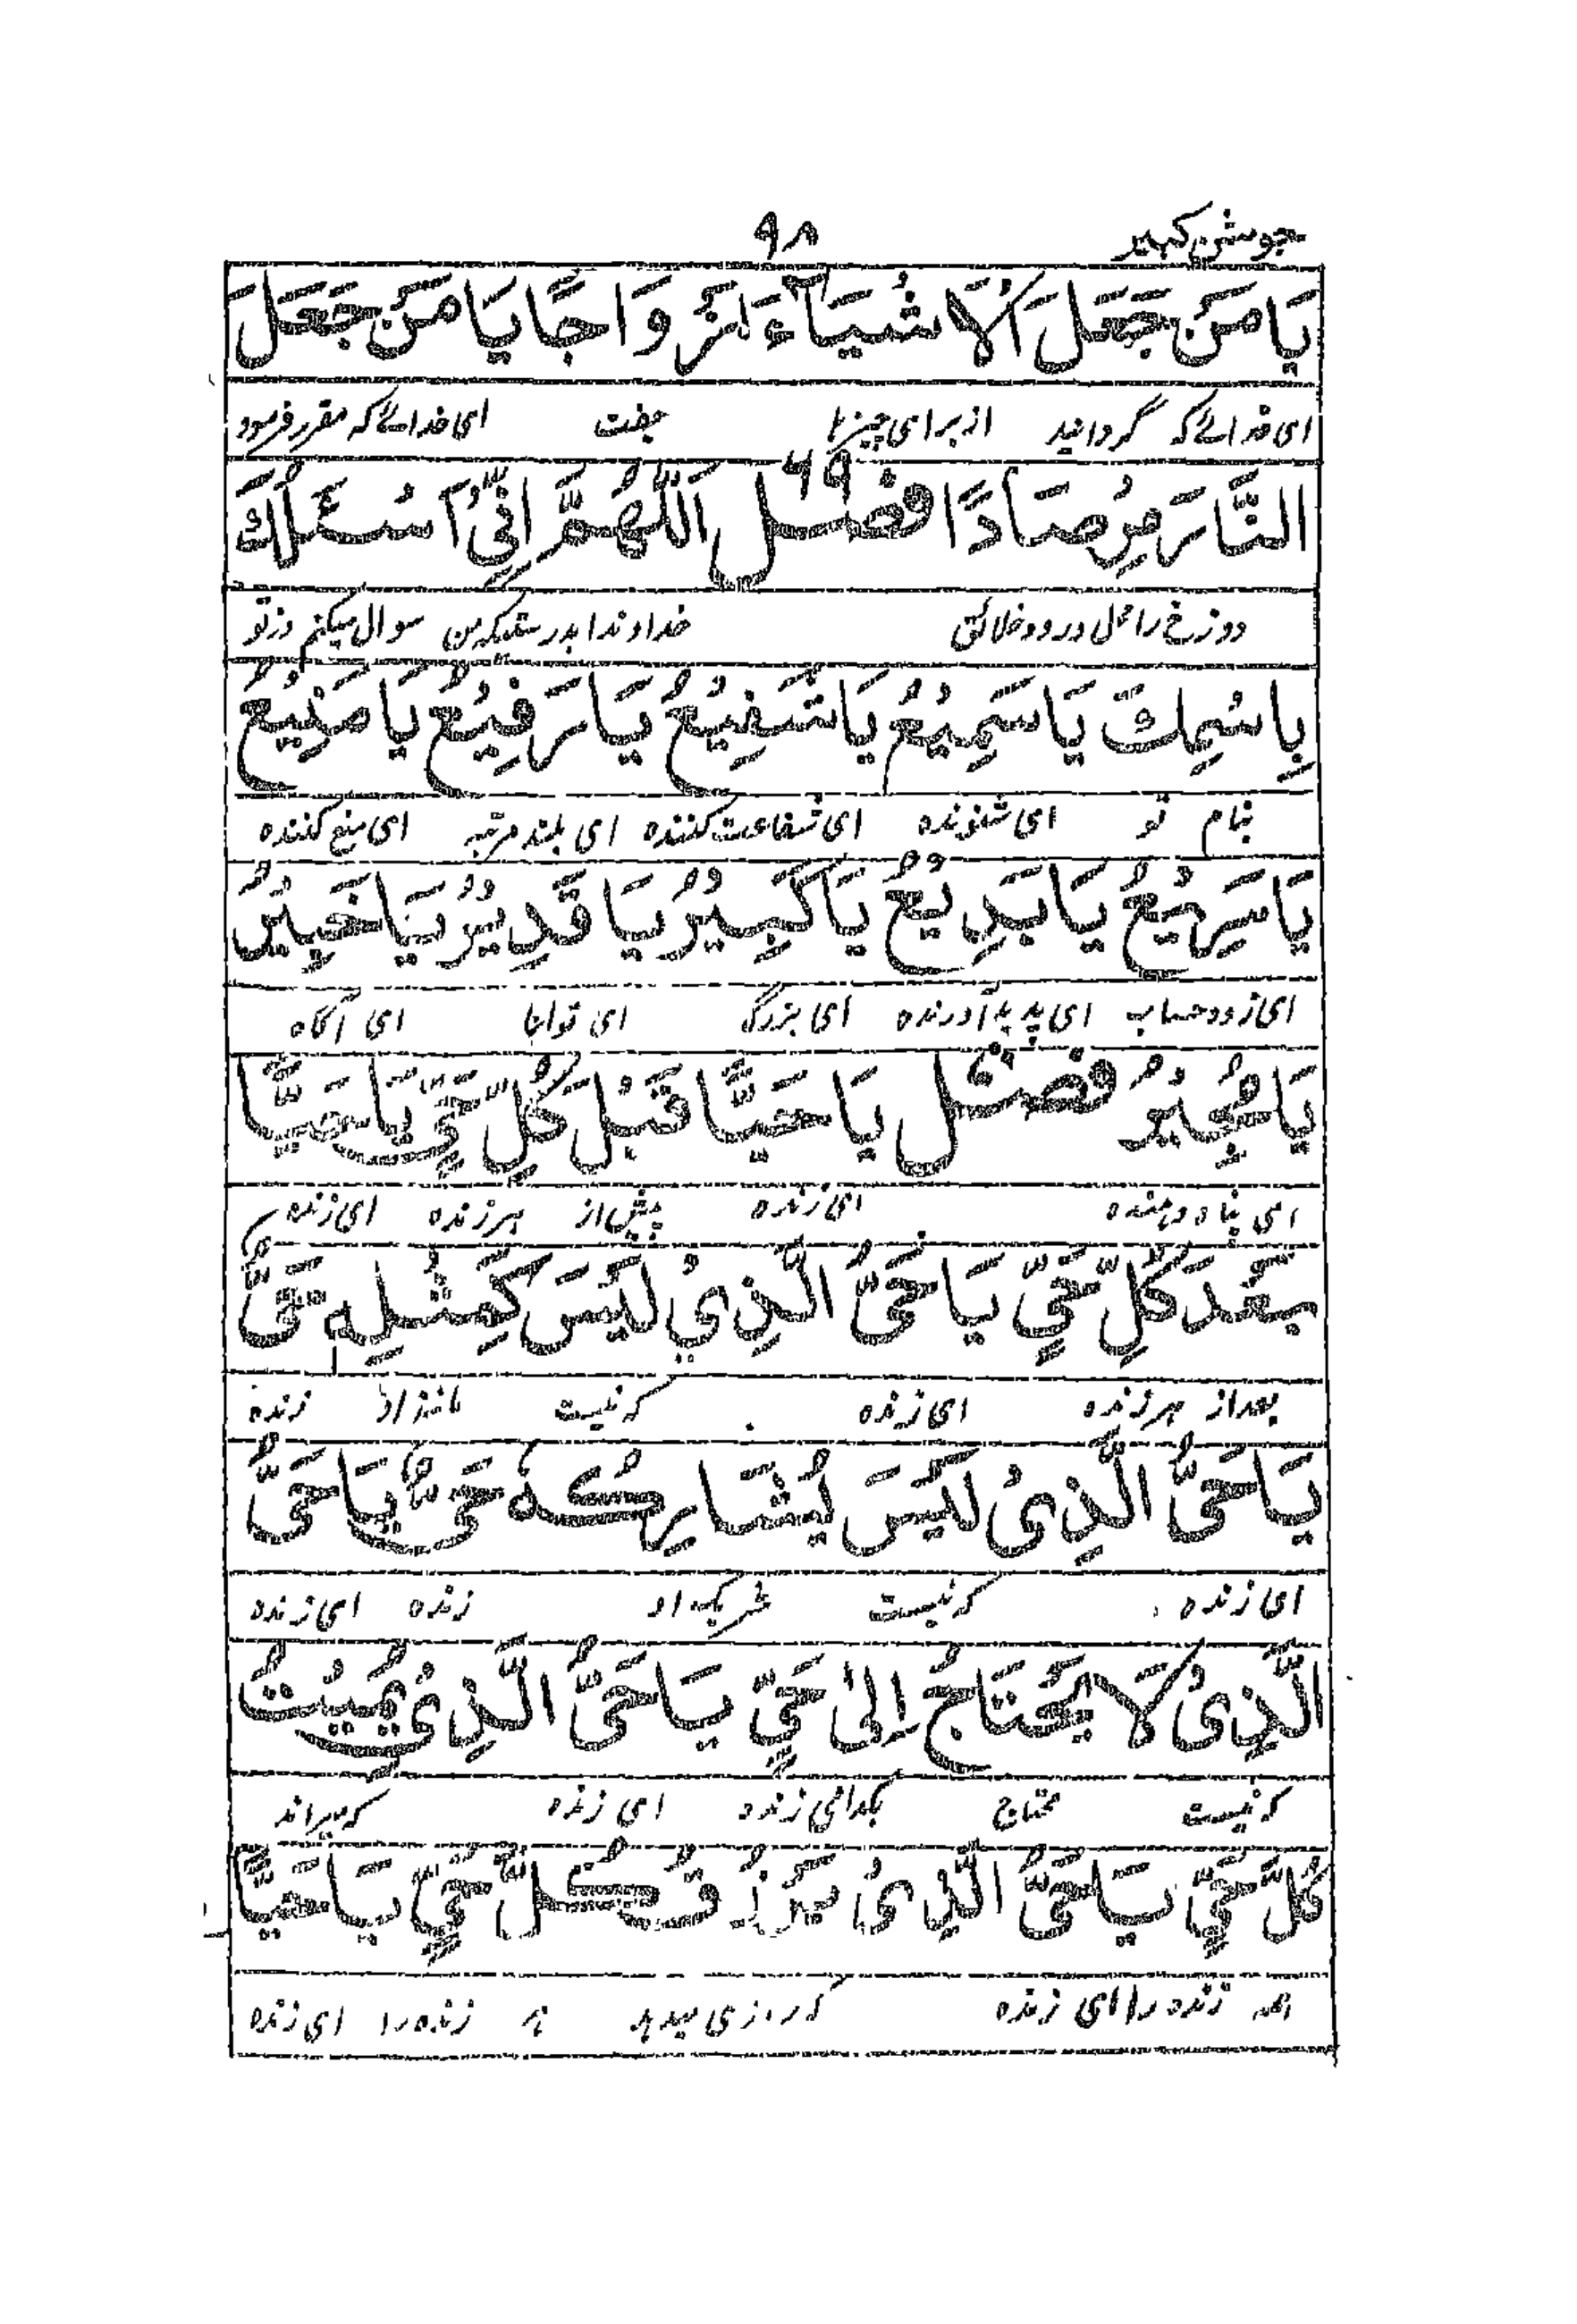 جوشن کبیر
۹۸
يَا مَنْ جَعَلَ الْاَشْيَآءَ اَزْوَاجًا يَا مَنْ جَعَلَ
ای خدائے که گردانید از برای چیزها جفت ای خدائے که مقرر فرمود
النَّارَ مِرْصَادًا فصل ۶۹ اَللّٰهُمَّ اِنِّيْ اَسْئَلُكَ
دوزخ را محل ورود خلائق خداوندا بدرستیکه من سوال میکنم از تو
بِاسْمِكَ يَا سَمِيْعُ يَا شَفِيْعُ يَا رَفِيْعُ يَا مَنِيْعُ
بنام تو ای شنونده ای شفاعت کننده ای بلند مرتبه ای منع کننده
يَا سَرِيْعُ يَا بَدِيْعُ يَا كَبِيْرُ يَا قَدِيْرُ يَا خَبِيْرُ
ای زود حساب ای پدید آورنده ای بزرگ ای توانا ای آگاه
يَا مُجِيْرُ فصل يَا حَيًّا قَبْلَ كُلِّ حَيٍّ يَا حَيًّا
ای پناه دهنده ای زنده پیش از هر زنده ای زنده
بَعْدَ كُلِّ حَيٍّ يَا حَيُّ الَّذِيْ لَيْسَ كَمِثْلِهٖ حَيٌّ
بعد از هر زنده ای زنده که نیست مانند او زنده
يَا حَيُّ الَّذِيْ لَيْسَ يُشَارِكُهٗ حَيٌّ يَا حَيُّ
ای زنده که نیست شریک او زنده ای زنده
الَّذِيْ لَا يَحْتَاجُ اِلٰى حَيٍّ يَا حَيُّ الَّذِيْ يُمِيْتُ
که نیست محتاج زنده ای زنده که میراند
كُلَّ حَيٍّ يَا حَيُّ الَّذِيْ يَرْزُقُ كُلَّ حَيٍّ يَا حَيًّا
همه زنده را ای زنده که روزی میدهد هر زنده را ای زنده